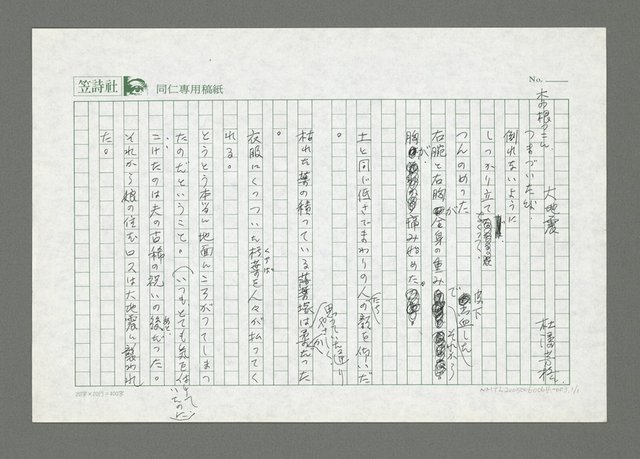 笠詩社
同仁專用稿紙
No.
大地震
杜潘芳格
木の根っこに
つまづいたが
倒れないように
しっかり立て
つんのめった
右腕と右胸が全身の重みで
皮下
出血した
それから
胸が痛み始めた。
土と同じ低さでまわりの人の顔を仰いだ
。
枯れた葉の積っている落葉
思っていた通り
やさかく
衣服にくっついた杉葉を人々が払ってく
れる。
とうとう本当に地面にころがってしまっ
たのだということ。
(いつもとても気を付けて
いたのに)
こけたのは夫の古稀の祝いの後だった。
それから娘の住むロスは大地震に襲われ
た。